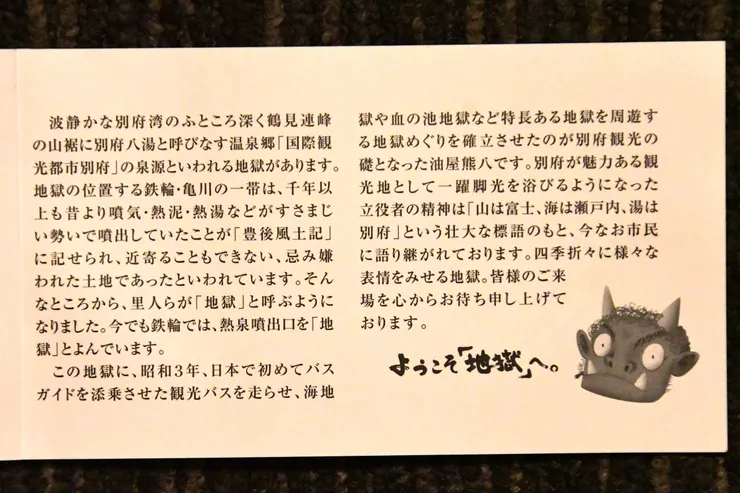 波静かな別府湾のふところ深く鶴見連峰
の山裾に別府八湯と呼びなす温泉郷「国際観
光都市別府」の泉源といわれる地獄があります。
地獄の位置する鉄輪・亀川の一帯は、千年以
上も昔より噴気・熱泥・熱湯などがすさまじ
い勢いで噴出していたことが「豊後風土記」
に記せられ、近寄ることもできない、忌み嫌
われた土地であったといわれています。そん
なところから、里人らが「地獄」と呼ぶように
なりました。今でも鉄輪では、熱泉噴出口を「地
獄」とよんでいます。
この地獄に、昭和3年、日本で初めてバス
ガイドを添乗させた観光バスを走らせ、海地
獄や血の池地獄など特長ある地獄を周遊す
る地獄めぐりを確立させたのが別府観光の
礎となった油屋熊八です。別府が魅力ある観
光地として一躍脚光を浴びるようになった
立役者の精神は「山は富士、海は瀬戸内、湯は
別府」という壮大な標語のもと、今なお市民
に語り継がれております。四季折々に様々な
表情をみせる地獄。皆様のご来
場を心からお待ち申し上げて
おります。
ようこそ「地獄」へ。